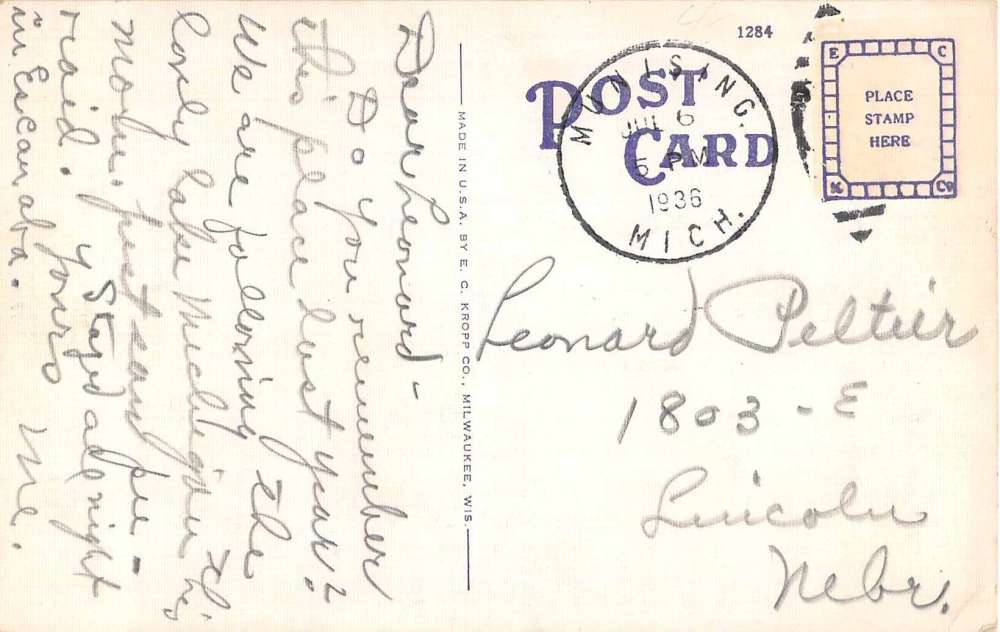 Dear Leonard -
Do you remember
this place last year?
We are following the
lovely lake Michigan this
morn. just sand pie -
raid. Stayed all night
in Escanaba.
yours
Me.
MADE IN U.S.A. BY E. C. KROPP CO., MILWAUKEE, WIS.
1284
POST
CARD
MUNISING.
JUL 6
5 PM
1936
MICH.
E C
PLACE
STAMP
HERE
K Co
Leonard Peltier
1803 - E
Lincoln
Nebr.